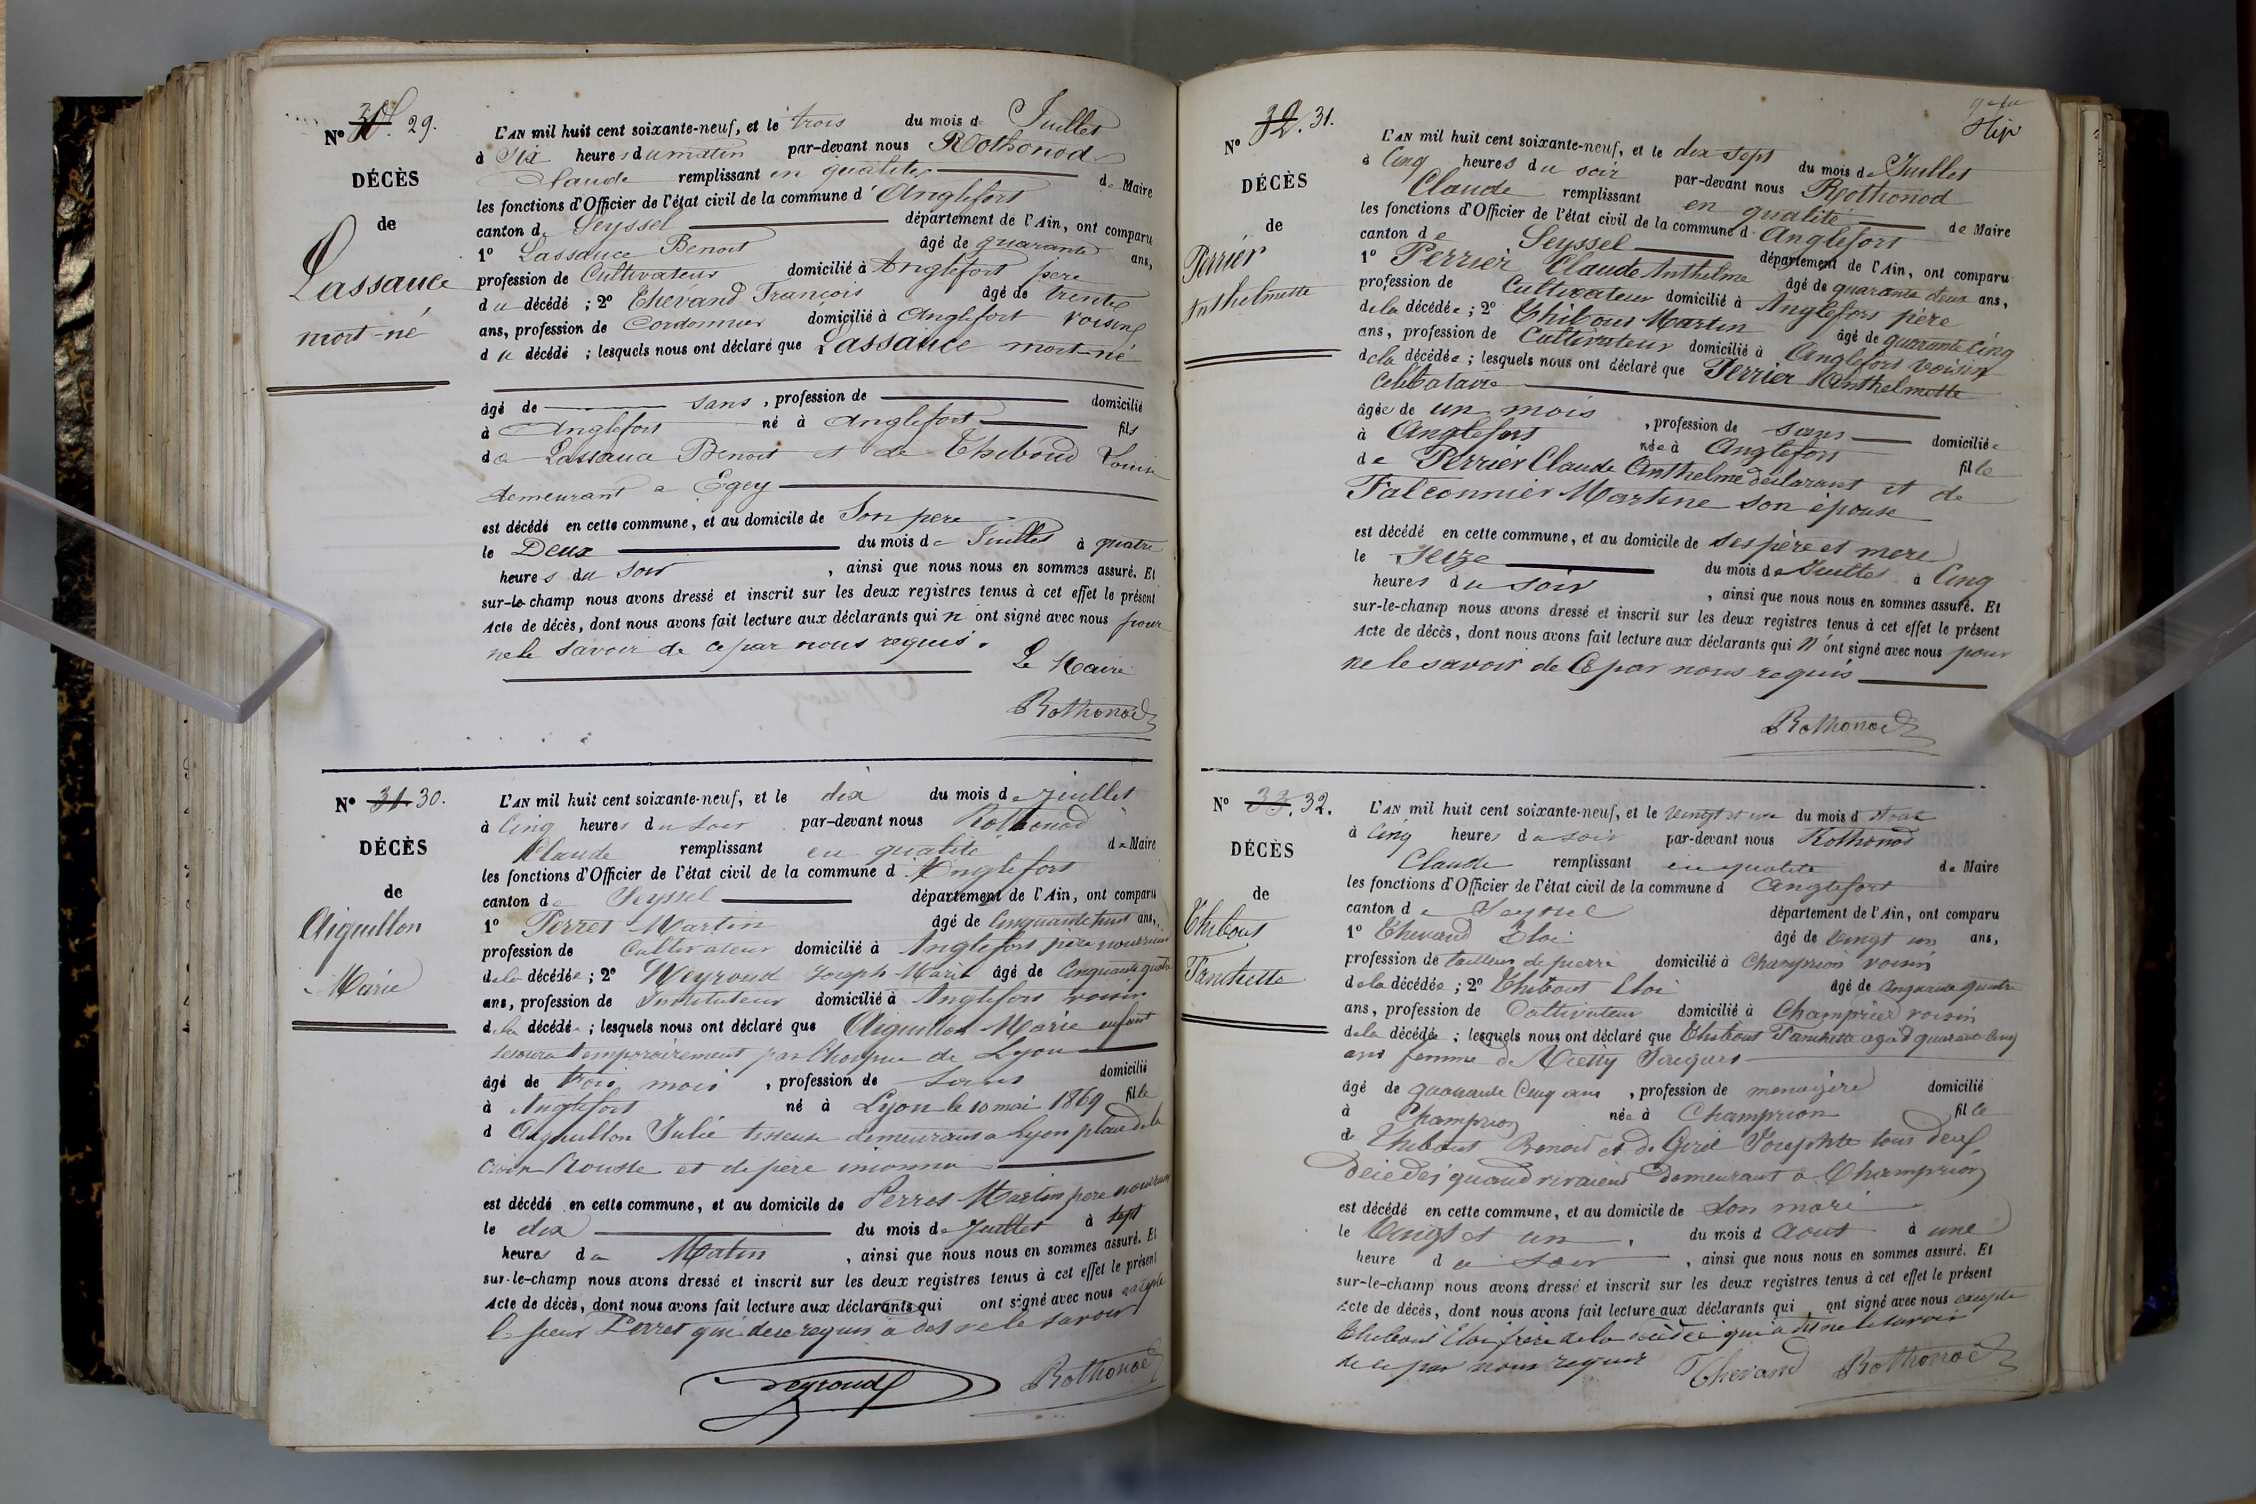 N° 30. 29.
DÉCÈS
de
Lassauce
mort-né
L'AN mil huit cent soixante-neuf, et le trois du mois de Juillet
à Six heures du matin par-devant nous Rothonod
Claude remplissant en qualité de Maire
les fonctions d'Officier de l'état civil de la commune d'Anglefort
canton de Seyssel département de l'Ain, ont comparu
1° Lassauce Benoit âgé de quarante ans,
profession de Cultivateur domicilié à Anglefort père
du décédé ; 2° Thévand François âgé de trente
ans, profession de Cordonnier domicilié à Anglefort voisin
du décédé ; lesquels nous ont déclaré que Lassauce mort-né
âgé de sans, profession de domicilié
à Anglefort né à Anglefort fils
de Lassauce Benoit et de Thiboud Louise
demeurant a Egey
est décédé en cette commune, et au domicile de Son pere
le Deux du mois de Juillet à quatre
heures du Soir, ainsi que nous nous en sommes assuré. Et
sur-le-champ nous avons dressé et inscrit sur les deux registres tenus à cet effet le présent
Acte de décès, dont nous avons fait lecture aux déclarants qui n'ont signé avec nous pour
ne le savoir de ce par nous requis.
Le Maire
Rothonod
N° 31. 30.
DÉCÈS
de
Aiguillon
Marie
L'AN mil huit cent soixante-neuf, et le dix du mois de juillet
à Cinq heures du soir par-devant nous Rothonod
Claude remplissant en qualité de Maire
les fonctions d'Officier de l'état civil de la commune d'Anglefort
canton de Seyssel département de l'Ain, ont comparu
1° Perret Martin âgé de Cinquante huit ans,
profession de Cultivateur domicilié à Anglefort père nourricier
de la décédée ; 2° Weyroud Joseph Marie âgé de Cinquante quatre
ans, profession de Instituteur domicilié à Anglefort voisin
de la décédée ; lesquels nous ont déclaré que Aiguillon Marie enfant
secouru temporairement par l'hospice de Lyon
âgé de trois mois, profession de Sans domicilié
à Anglefort né à Lyon le 10 mai 1869 fille
d'Aiguillon Julie tisseuse demeurant a Lyon place de la
Croix Rousse et de père inconnu
est décédé en cette commune, et au domicile de Perret Martin pere nourricier
le dix du mois de Juillet à sept
heures du Matin, ainsi que nous nous en sommes assuré. Et
sur-le-champ nous avons dressé et inscrit sur les deux registres tenus à cet effet le présent
Acte de décès, dont nous avons fait lecture aux déclarants qui ont signé avec nous excepté
le sieur Perret qui de ce requis a dit ne le savoir
Weyroud Rothonod
N° 32. 31.
DÉCÈS
de
Perrier
Anthelmette
L'AN mil huit cent soixante-neuf, et le dix sept du mois de Juillet
à Cinq heures du soir par-devant nous Rothonod
Claude remplissant en qualité de Maire
les fonctions d'Officier de l'état civil de la commune d'Anglefort
canton de Seyssel département de l'Ain, ont comparu
1° Perrier Claude Anthelme âgé de quarante deux ans,
profession de Cultivateur domicilié à Anglefort père
de la décédée ; 2° Thibout Martin âgé de quarante Cinq
ans, profession de Cultivateur domicilié à Anglefort voisin
de la décédée ; lesquels nous ont déclaré que Perrier Anthelmette
Célibataire
âgée de un mois, profession de sans domiciliée
à Anglefort née à Anglefort fille
de Perrier Claude Anthelme déclarant et de
Falconnier Martine son épouse
est décédé en cette commune, et au domicile de ses père et mere
le Seize du mois de Juillet à Cinq
heures du soir, ainsi que nous nous en sommes assuré. Et
sur-le-champ nous avons dressé et inscrit sur les deux registres tenus à cet effet le présent
Acte de décès, dont nous avons fait lecture aux déclarants qui n'ont signé avec nous pour
ne le savoir de Ce par nous requis
Rothonod
N° 33. 32.
DÉCÈS
de
Thibout
Fanchette
L'AN mil huit cent soixante-neuf, et le vingt et un du mois d'Aout
à Cinq heures du soir par-devant nous Rothonod
Claude remplissant en qualité de Maire
les fonctions d'Officier de l'état civil de la commune d'Anglefort
canton de Seyssel département de l'Ain, ont comparu
1° Thevand Eloi âgé de vingt un ans,
profession de tailleur de pierre domicilié à Champrion voisin
de la décédée ; 2° Thibout Eloi âgé de Cinquante quatre
ans, profession de Cultivateur domicilié à Champrion voisin
de la décédée ; lesquels nous ont déclaré que Thibout Fanchette agé d quarante Cinq
ans femme de Jacques
âgé de quarante Cinq ans, profession de menagère domicilié
à Champrion née à Champrion fille
de Thibout Benoit et de Josephte tous deux
décédés quand vivaient Demeurant a Champrion
est décédé en cette commune, et au domicile de son mari
le Vingt et un du mois d'Aout à une
heure du soir, ainsi que nous nous en sommes assuré. Et
sur-le-champ nous avons dressé et inscrit sur les deux registres tenus à cet effet le présent
Acte de décès, dont nous avons fait lecture aux déclarants qui ont signé avec nous excepté
Thibout Eloi frère de la décédée qui a dit ne le savoir
de ce par nous requis Thevand Rothonod